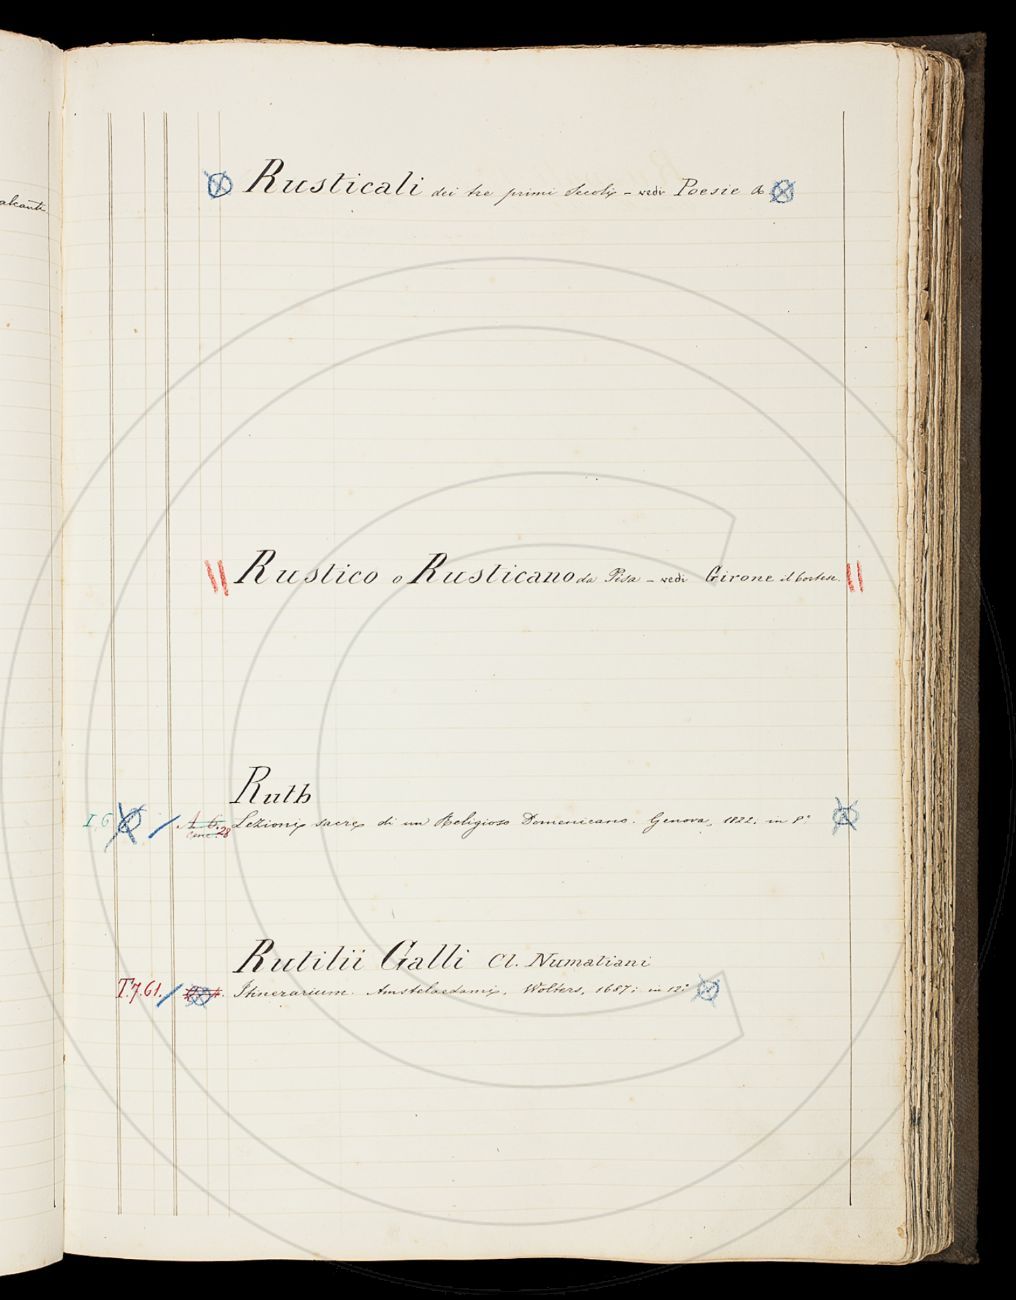 alcanti
Rusticali dei tre primi Secoli – vedi Poesie &
Rustico o Rusticano da Pisa – vedi Girone il Cortese.
Ruth
I. 6 A. 6. 28 Lezioni sacre di un Religioso Domenicano. Genova, 1822; in 8°
Rutilii Galli Cl. Numatiani
T.7.61. Itinerarium. Amstelaedami, Wolters, 1687; in 12°